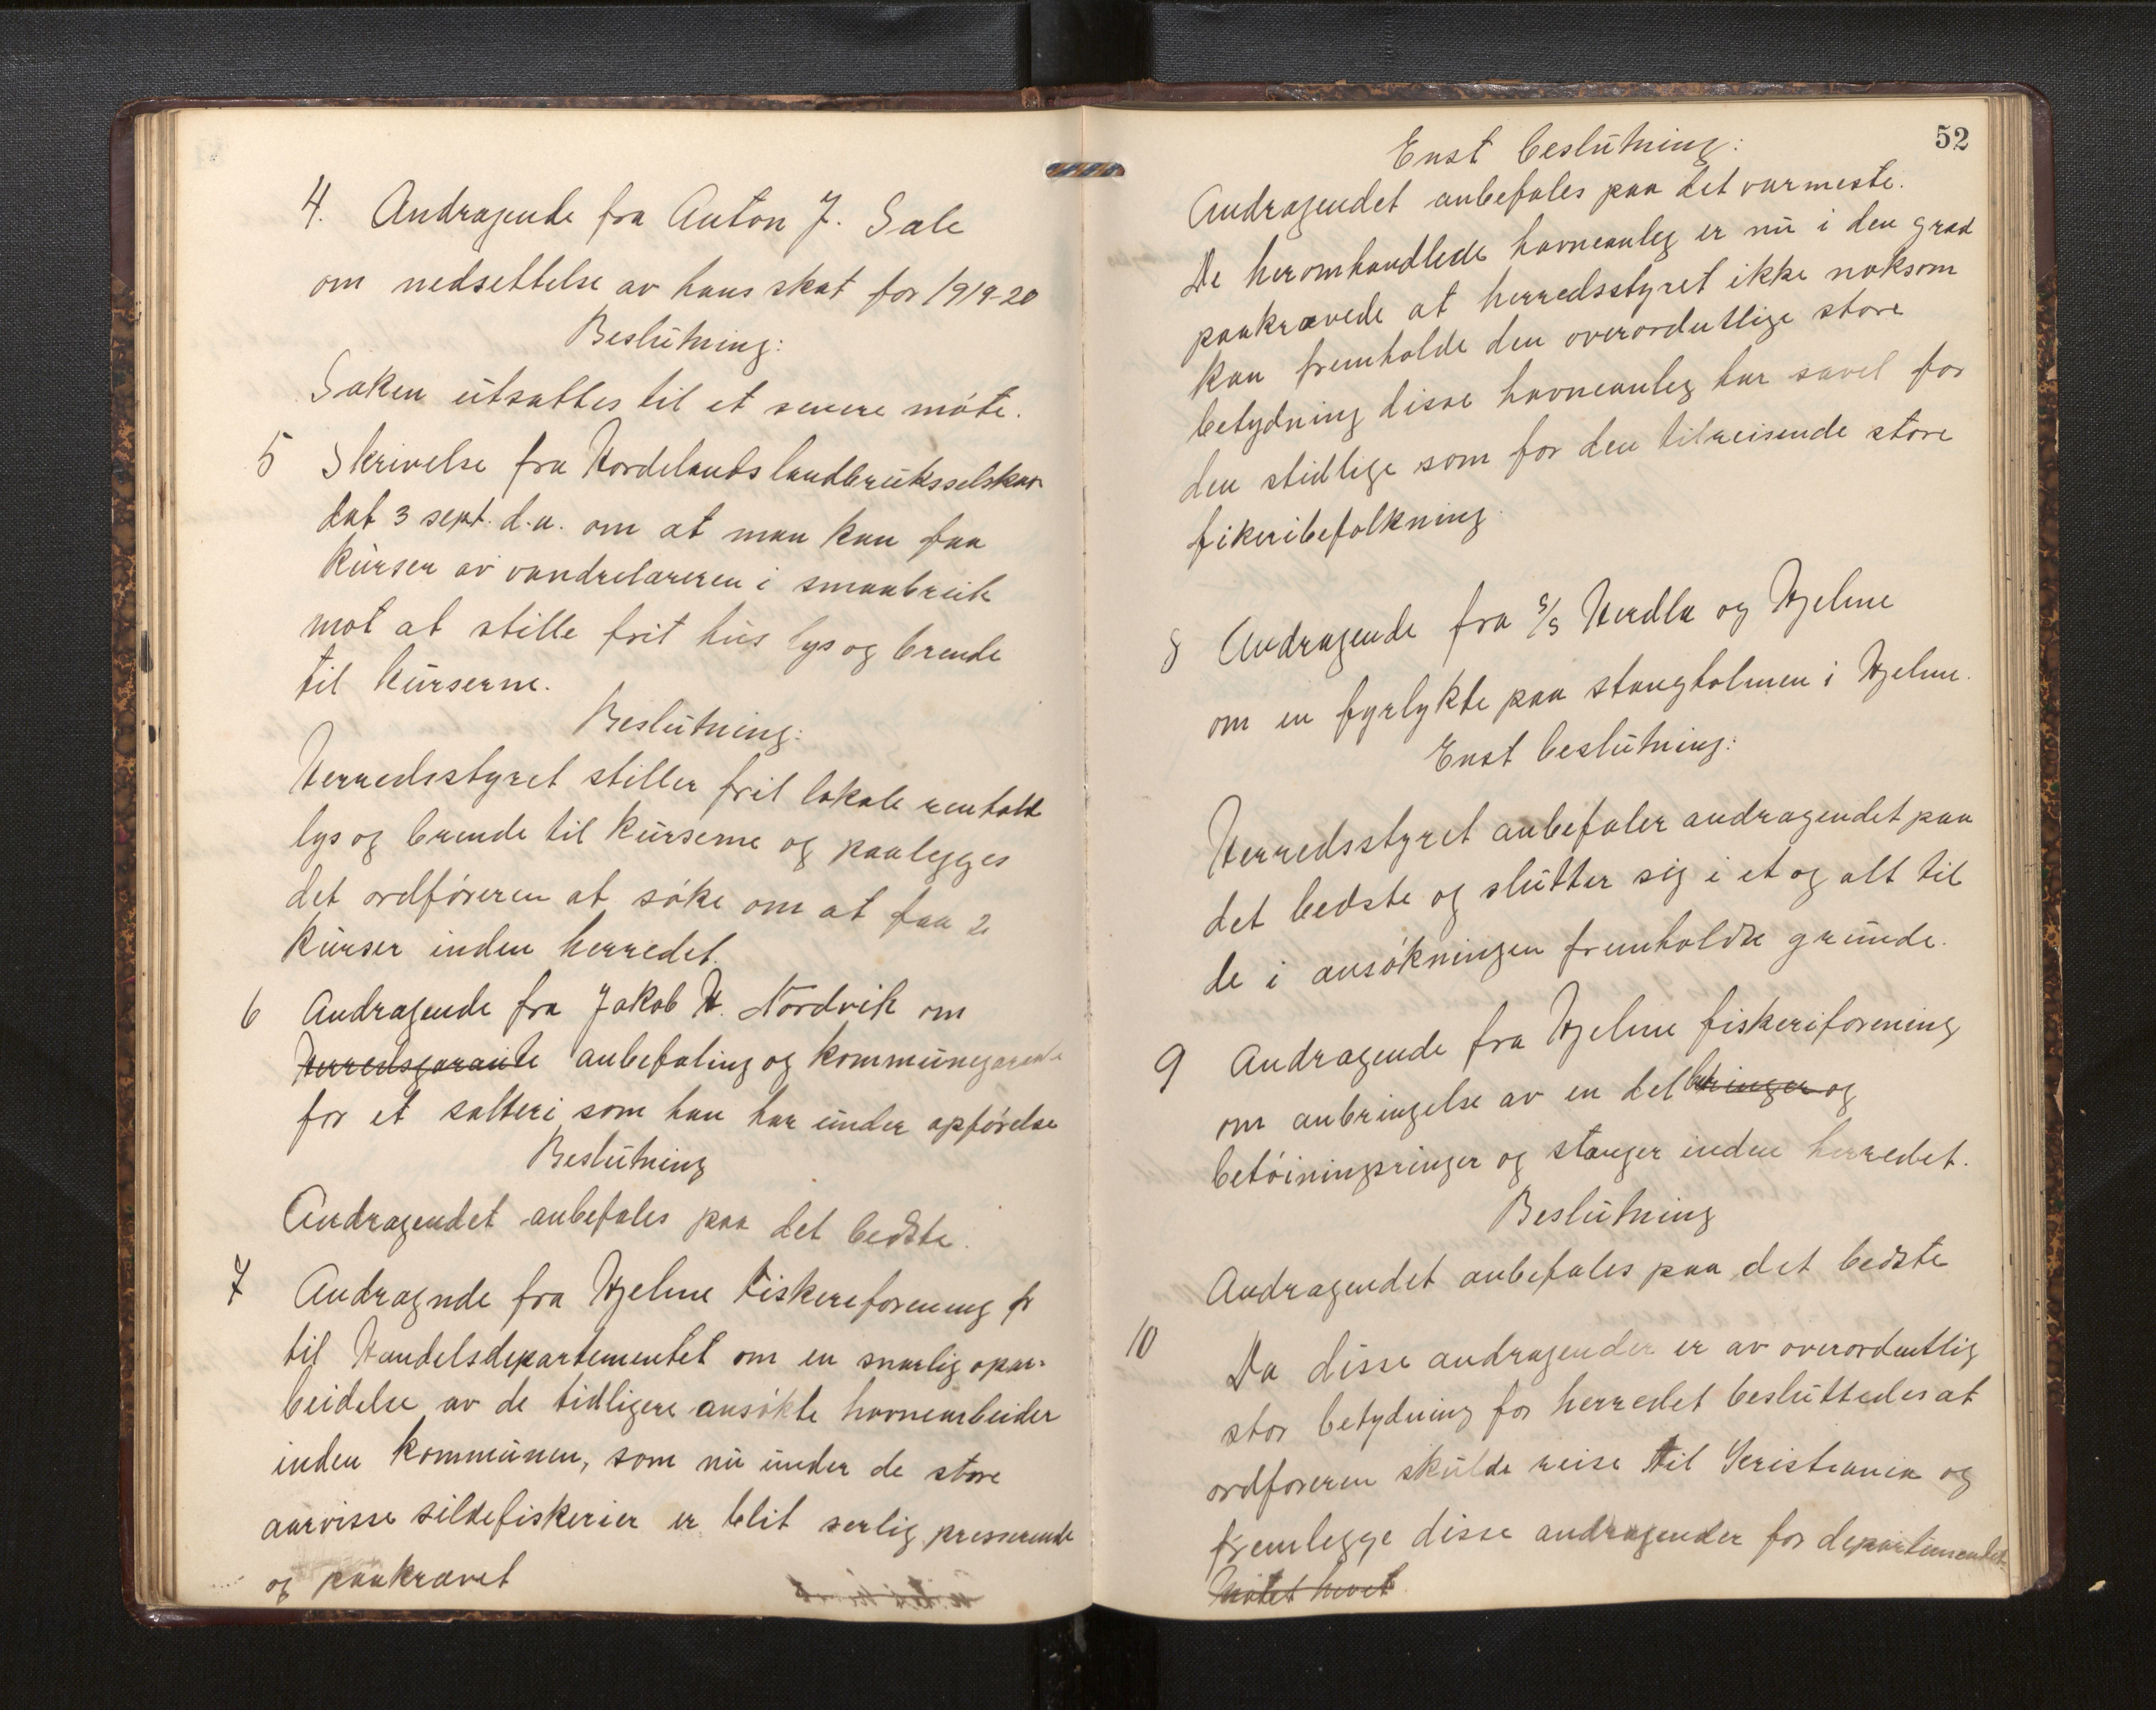 4. Andragende fra Anton J. Sale
om nedsettelse av hans skat for 1919-20
Beslutning:
Saken utsattes til et senere møte.
5 Skrivelse fra Hordelands landbruksselskav
dat 3 sept. d.a. om at man kan faa
kurser av vandrelæreren i smaabruk
mot at stille frit hus lys og brende
til kurserne.
Beslutning:
Herredsstyret stiller frit lokale renhold
lys og brende til kurserne og paalegges
det ordføreren at søke om at faa 2
kurser inden herredet.
6 Andragende fra Jakob H. Nordvik om
Herredsgarante anbefaling og kommunegarante
for et salteri som han har under opførelse
Beslutning
Andragendet anbefales paa det bedste.
7 Andragnde fra Hjelme Fiskereforening fr
til Handelsdepartementet om en snarlig opar-
beidelse av de tidligere ansøkte havnearbeider
inden kommunen, som nu under de store
aarvisse sildefiskerier er blit serlig presserende
og paakrævet
52
Enst beslutning:
Andragendet anbefales paa det varmeste.
De heromhandlede havneanleg er nu i den grad
paakrævede at herredsstyret ikke noksom
kan fremholde den overordutlige store
betydning disse havneanleg har savel for
den stidlige som for den tilreisende store
fikeribefolkning.
8 Andragende fra s/s Herdla og Hjelme
om en fyrlykte paa stangholmen i Hjelme.
Enst beslutning:
Herredsstyret anbefaler andragendet paa
det bedste og slutter sig i et og alt til
de i ansøkningen fremholdte grunde.
9 Andragende fra Hjelme fiskeriforening
om anbringelse av en del og
betøiningsringer og stanger inden herredet.
Beslutning
Andragendet anbefales paa det bedste
10 Da disse andragender er av overordentlig
stor betydning for herredet besluttedes at
ordføreren skulde reise til Kristiania og
fremlegge disse andragender for departementet
Møtet hevet.